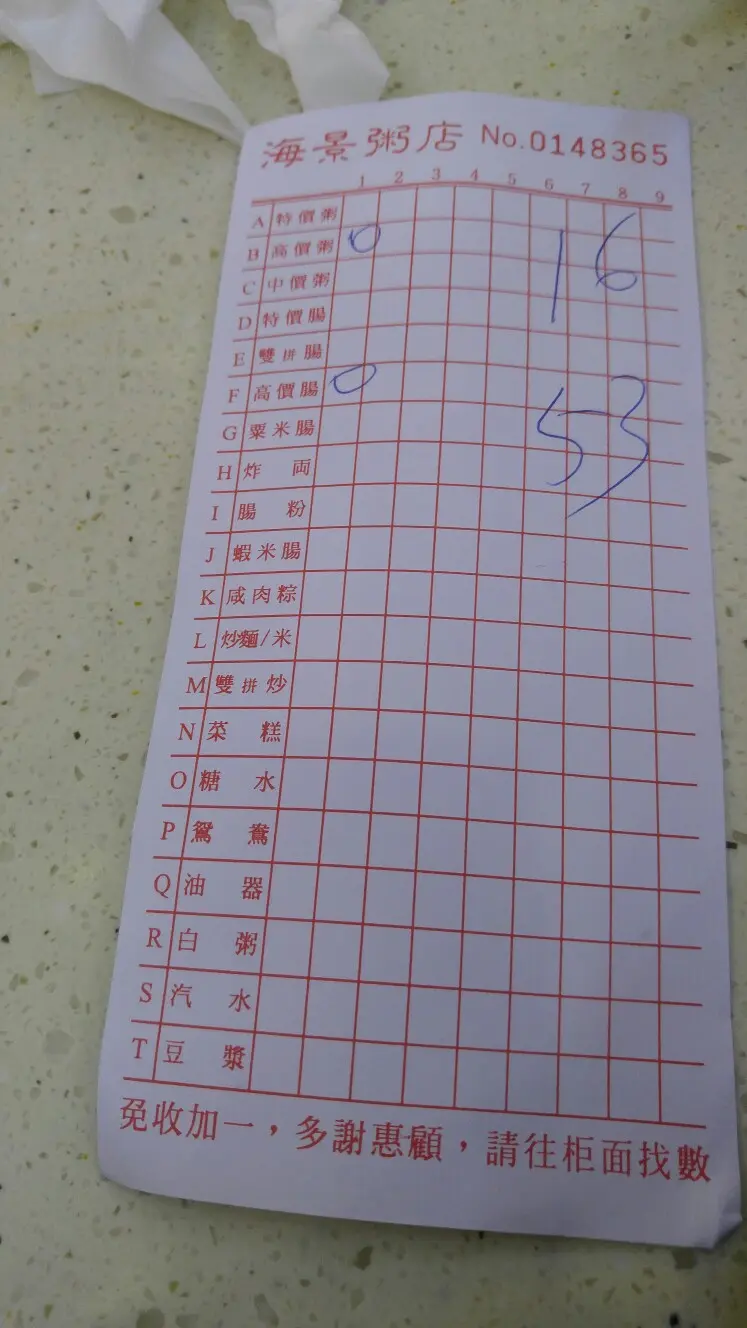 海景粥店 No.0148365
1 2 3 4 5 6 7 8 9
A 特價粥
B 高價粥 0
C 中價粥
D 特價腸
E 雙拼腸
F 高價腸 0
G 粟米腸
H 炸両
I 腸粉
J 蝦米腸
K 咸肉粽
L 炒麵/米
M 雙拼炒
N 菜糕
O 糖水
P 鴛鴦
Q 油器
R 白粥
S 汽水
T 豆漿
16
53
免收加一，多謝惠顧，請往柜面找數